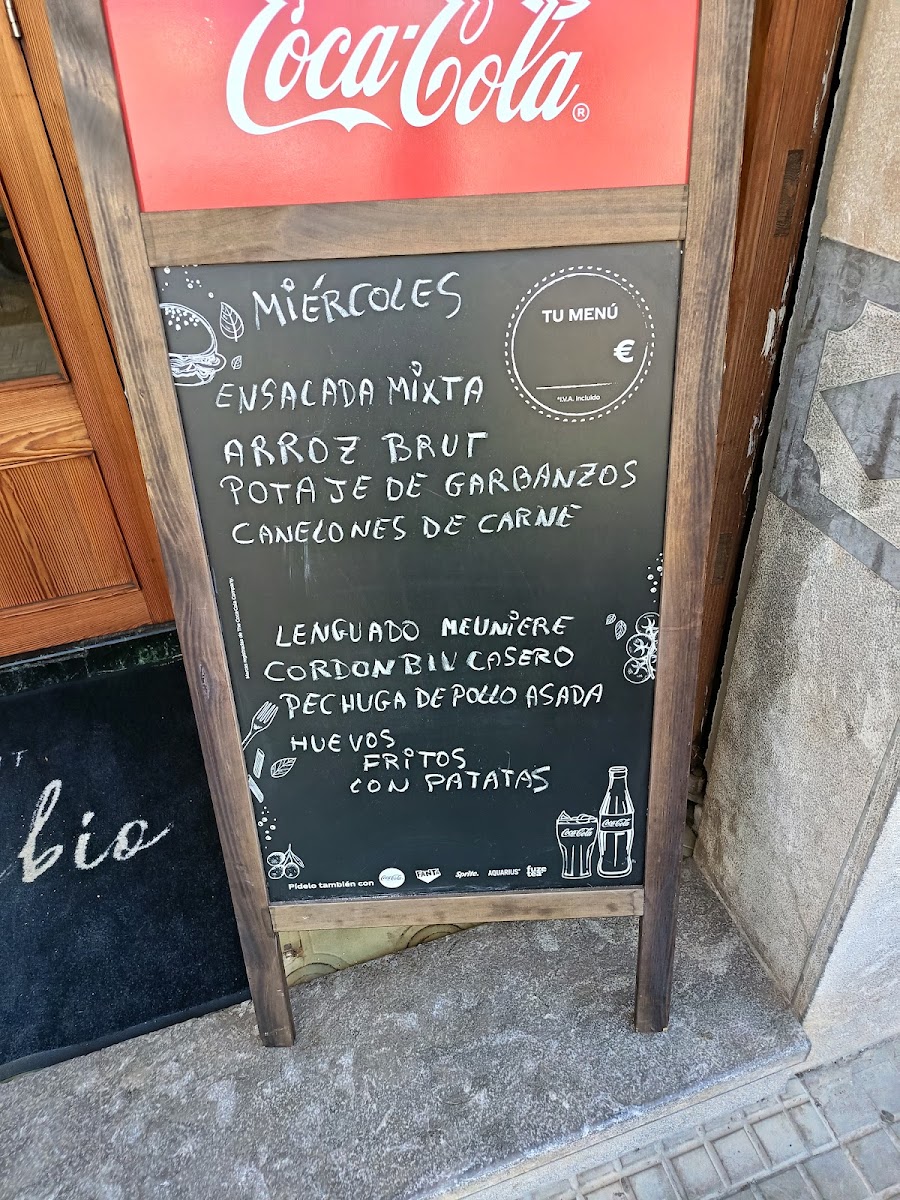 Coca-Cola®
MIÉRCOLES
TU MENÚ
€
*I.V.A. Incluido
ENSALADA MIXTA
ARROZ BRUT
POTAJE DE GARBANZOS
CANELONES DE CARNE
LENGUADO MEUNIERE
CORDON BLU CASERO
PECHUGA DE POLLO ASADA
HUEVOS
FRITOS
CON PATATAS
Coca-Cola Coca-Cola
Pídelo también con Coca-Cola FANTA Sprite. AQUARIUS fuze tea
bio